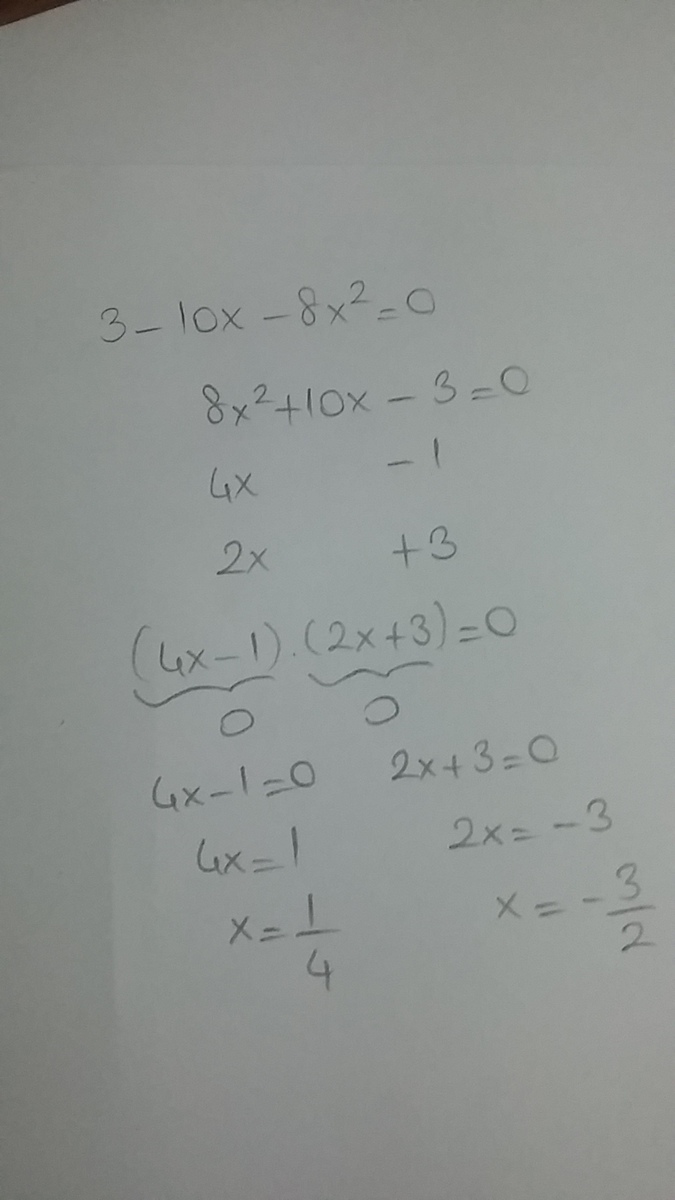 3 - 10x - 8x² = 0
8x² + 10x - 3 = 0
4x - 1
2x + 3
(4x - 1) . (2x + 3) = 0
0 0
4x - 1 = 0 2x + 3 = 0
4x = 1 2x = - 3
x = 1/4 x = - 3/2